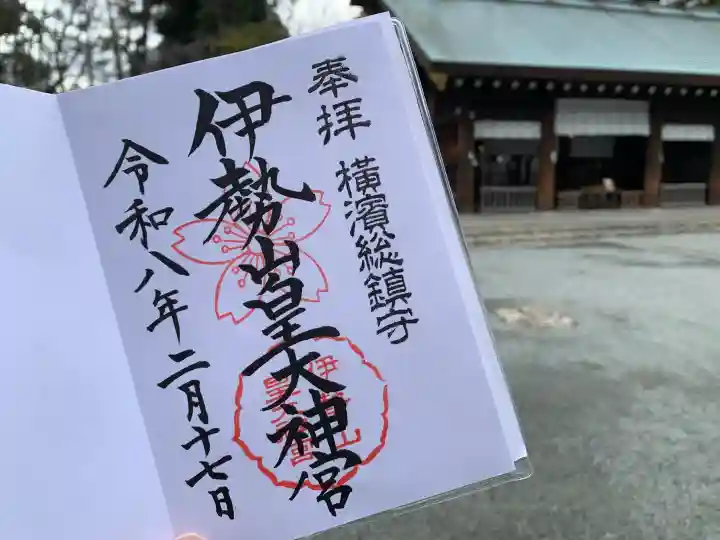 奉拝
横濱総鎮守
伊勢山皇大神宮
令和八年二月十七日